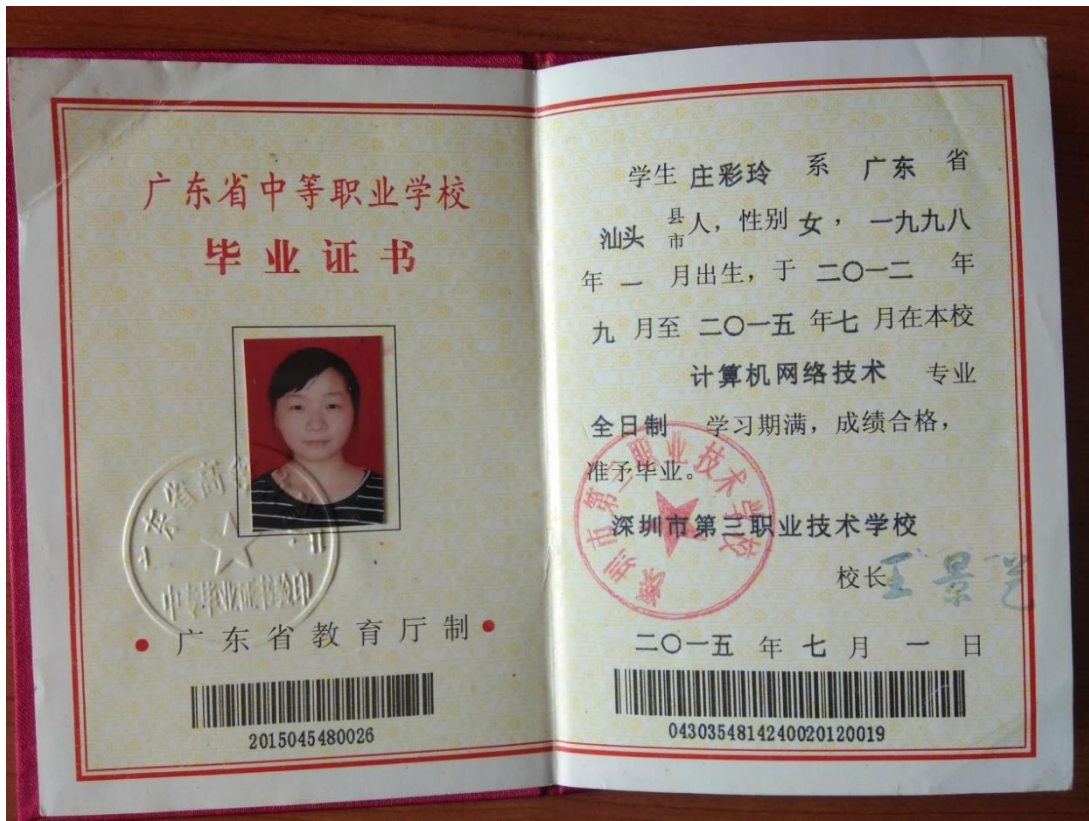 广东省中等职业学校
毕业证书
中专毕业证书验印
广东省教育厅制
2015045480026
学生 庄彩玲 系 广东 省
汕头 县市人，性别 女，一九九八
年 一 月出生，于 二〇一二 年
九 月至 二〇一五 年七 月在本校
计算机网络技术 专业
全日制 学习期满，成绩合格，
准予毕业。
深圳市第三职业技术学校
深圳市第三职业技术学校
校长 王景艺
二〇一五 年 七 月 一 日
0430354814240020120019